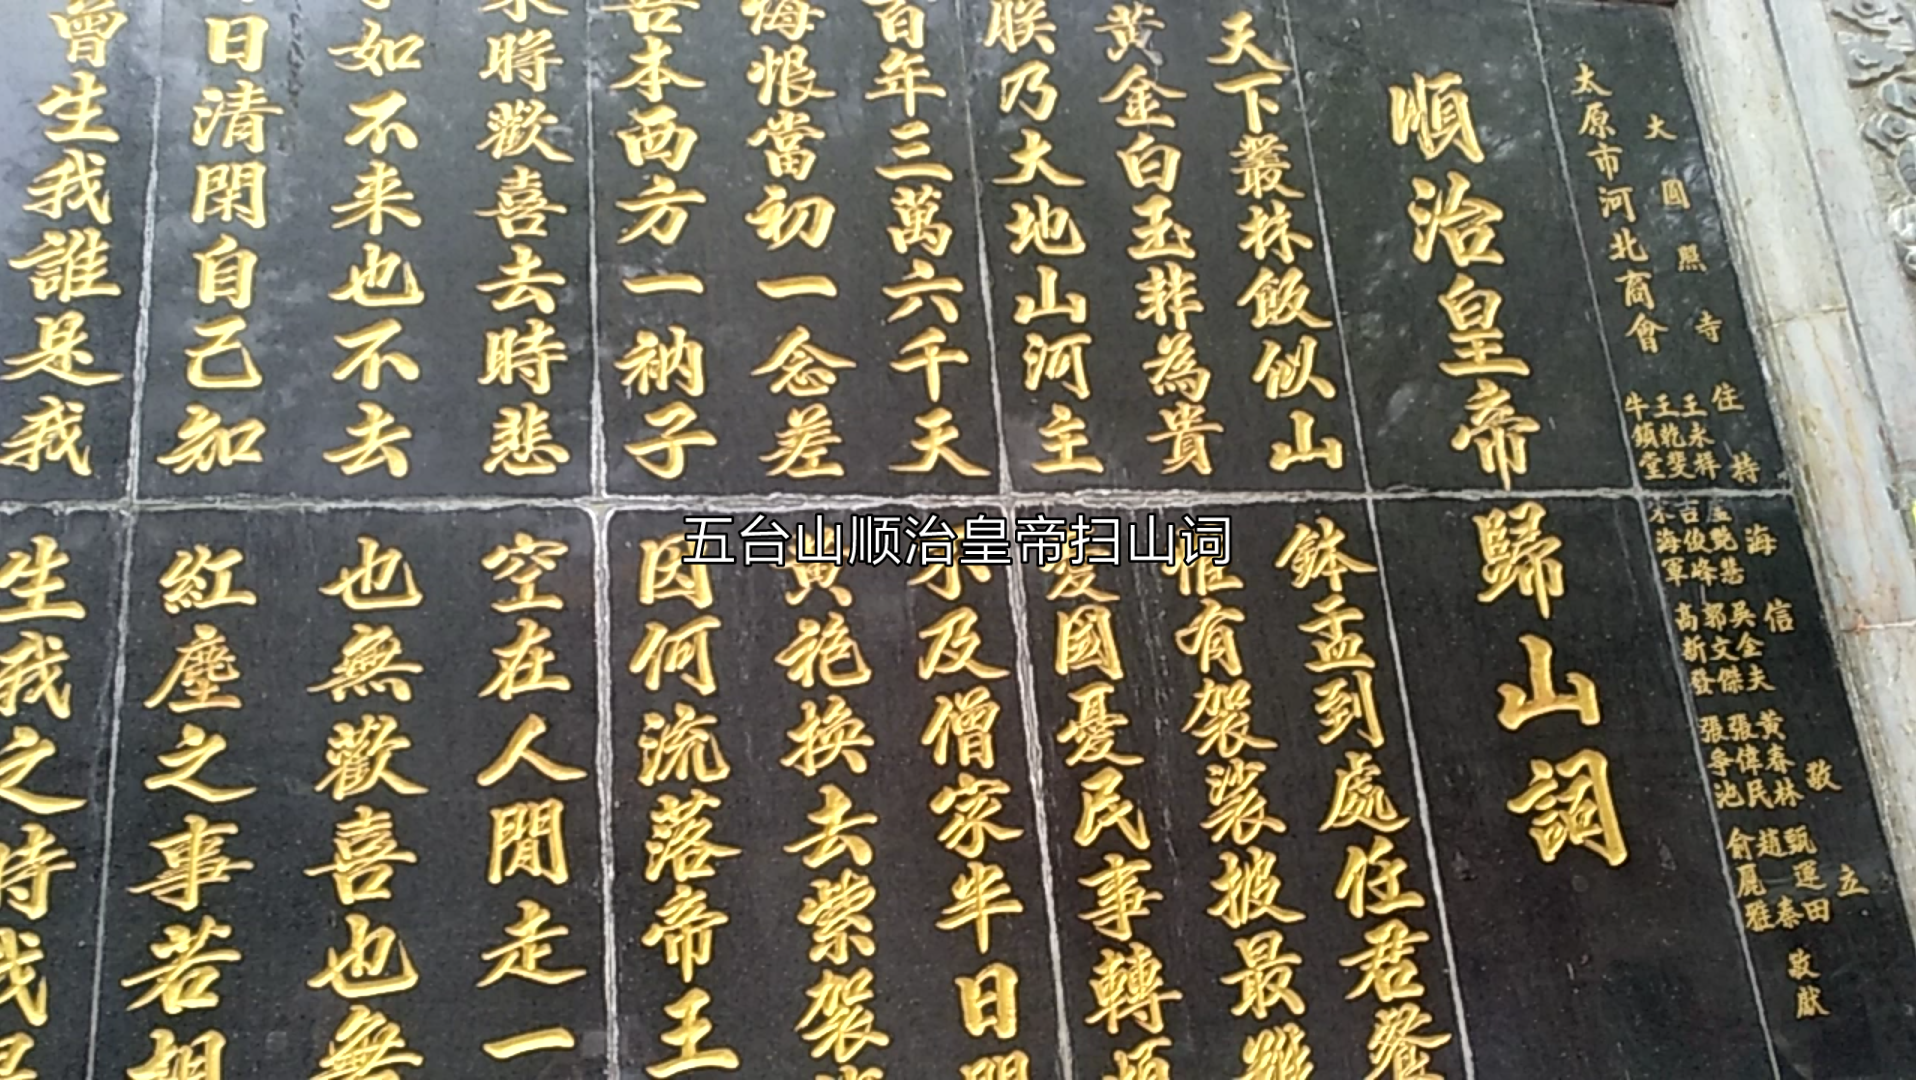 大圓照寺住持海信敬立
太原市河北商會
王永祥
王乾斐
牛鎖堂
吉俊峰
海軍
吳金夫
郭文傑
高新發
黃春林
張偉民
張爭池
甄運田
趙泰
俞麗雅
敬獻
順治皇帝歸山詞
天下叢林飯似山鉢盂到處任君餐
黃金白玉非為貴惟有袈裟披最難
朕乃大地山河主國憂民事轉煩
百年三萬六千天不及僧家半日閒
悔恨當初一念差黃袍換去紫袈
吾本西方一衲子因何流落帝王
來時歡喜去時悲空在人間走一
如不来也不去也無歡喜也無
日清閑自己知紅塵之事若相
曾生我誰是我生我之時我是
五台山顺治皇帝扫山词